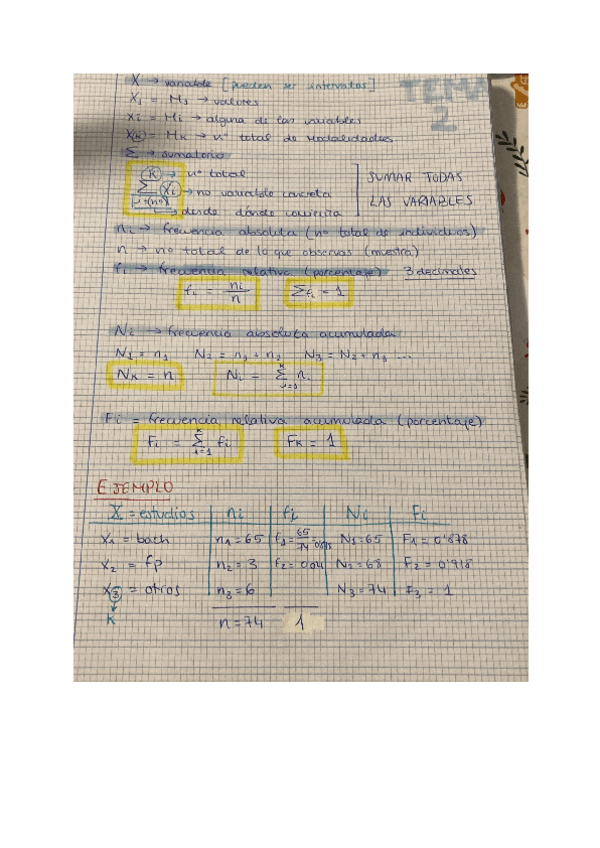 X → variable [pueden ser intervalos]
TEMA 2
X₁ = M₁ → valores
Xi = Mi → alguna de las variables
X(K) = MK → nº total de modalidades
Σ → sumatorio
K → nº total
Σ Xi → no variable concreta
→ desde dónde
SUMAR TODAS
LAS VARIABLES
ni → frecuencia absoluta (nº total de individuos)
n → nº total de lo que observas (muestra)
fi → frecuencia relativa (porcentaje) 3 decimales
fi = ni/n Σfi = 1
Ni → frecuencia absoluta acumulada
N₁ = n₁ N₂ = n₁ + n₂ N₃ = N₂ + n₃ ...
NK = n Ni = Σ ni
Fi = frecuencia relativa acumulada (porcentaje)
Fi = Σ fi FK = 1
EJEMPLO
X = estudios ni fi Ni Fi
X₁ = bach n₁ = 65 f₁ = 65/74 N₁ = 65 F₁ = 0'878
X₂ = fp n₂ = 3 f₂ = 0'04 N₂ = 68 F₂ = 0'918
X₃ = otros n₃ = 6 N₃ = 74 F₃ = 1
K n = 74 1